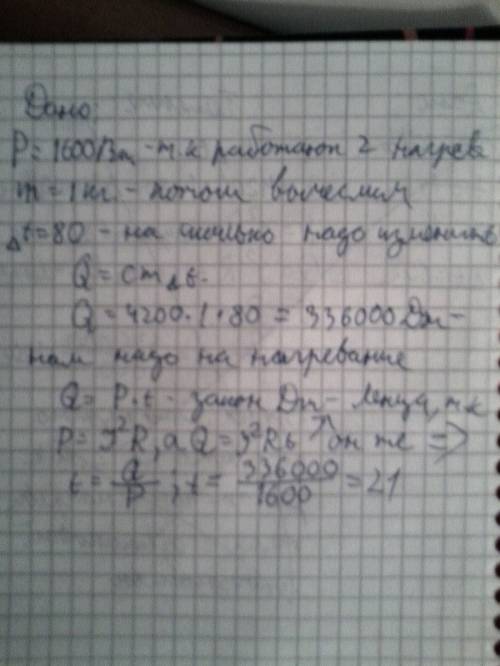 Дано:
P = 1600 Вт - т.к работают 2 нагрев
m = 1 кг. - потом вычеслим
Δt = 80 - на сколько надо изменить
Q = cmΔt.
Q = 4200 · 1 · 80 = 336000 Дж -
нам надо на нагревание
Q = P · t - закон Дж - Ленца, т.к
P = J²R, а Q = J²Rt он же =>
t = Q/P ; t = 336000/1600 = 21